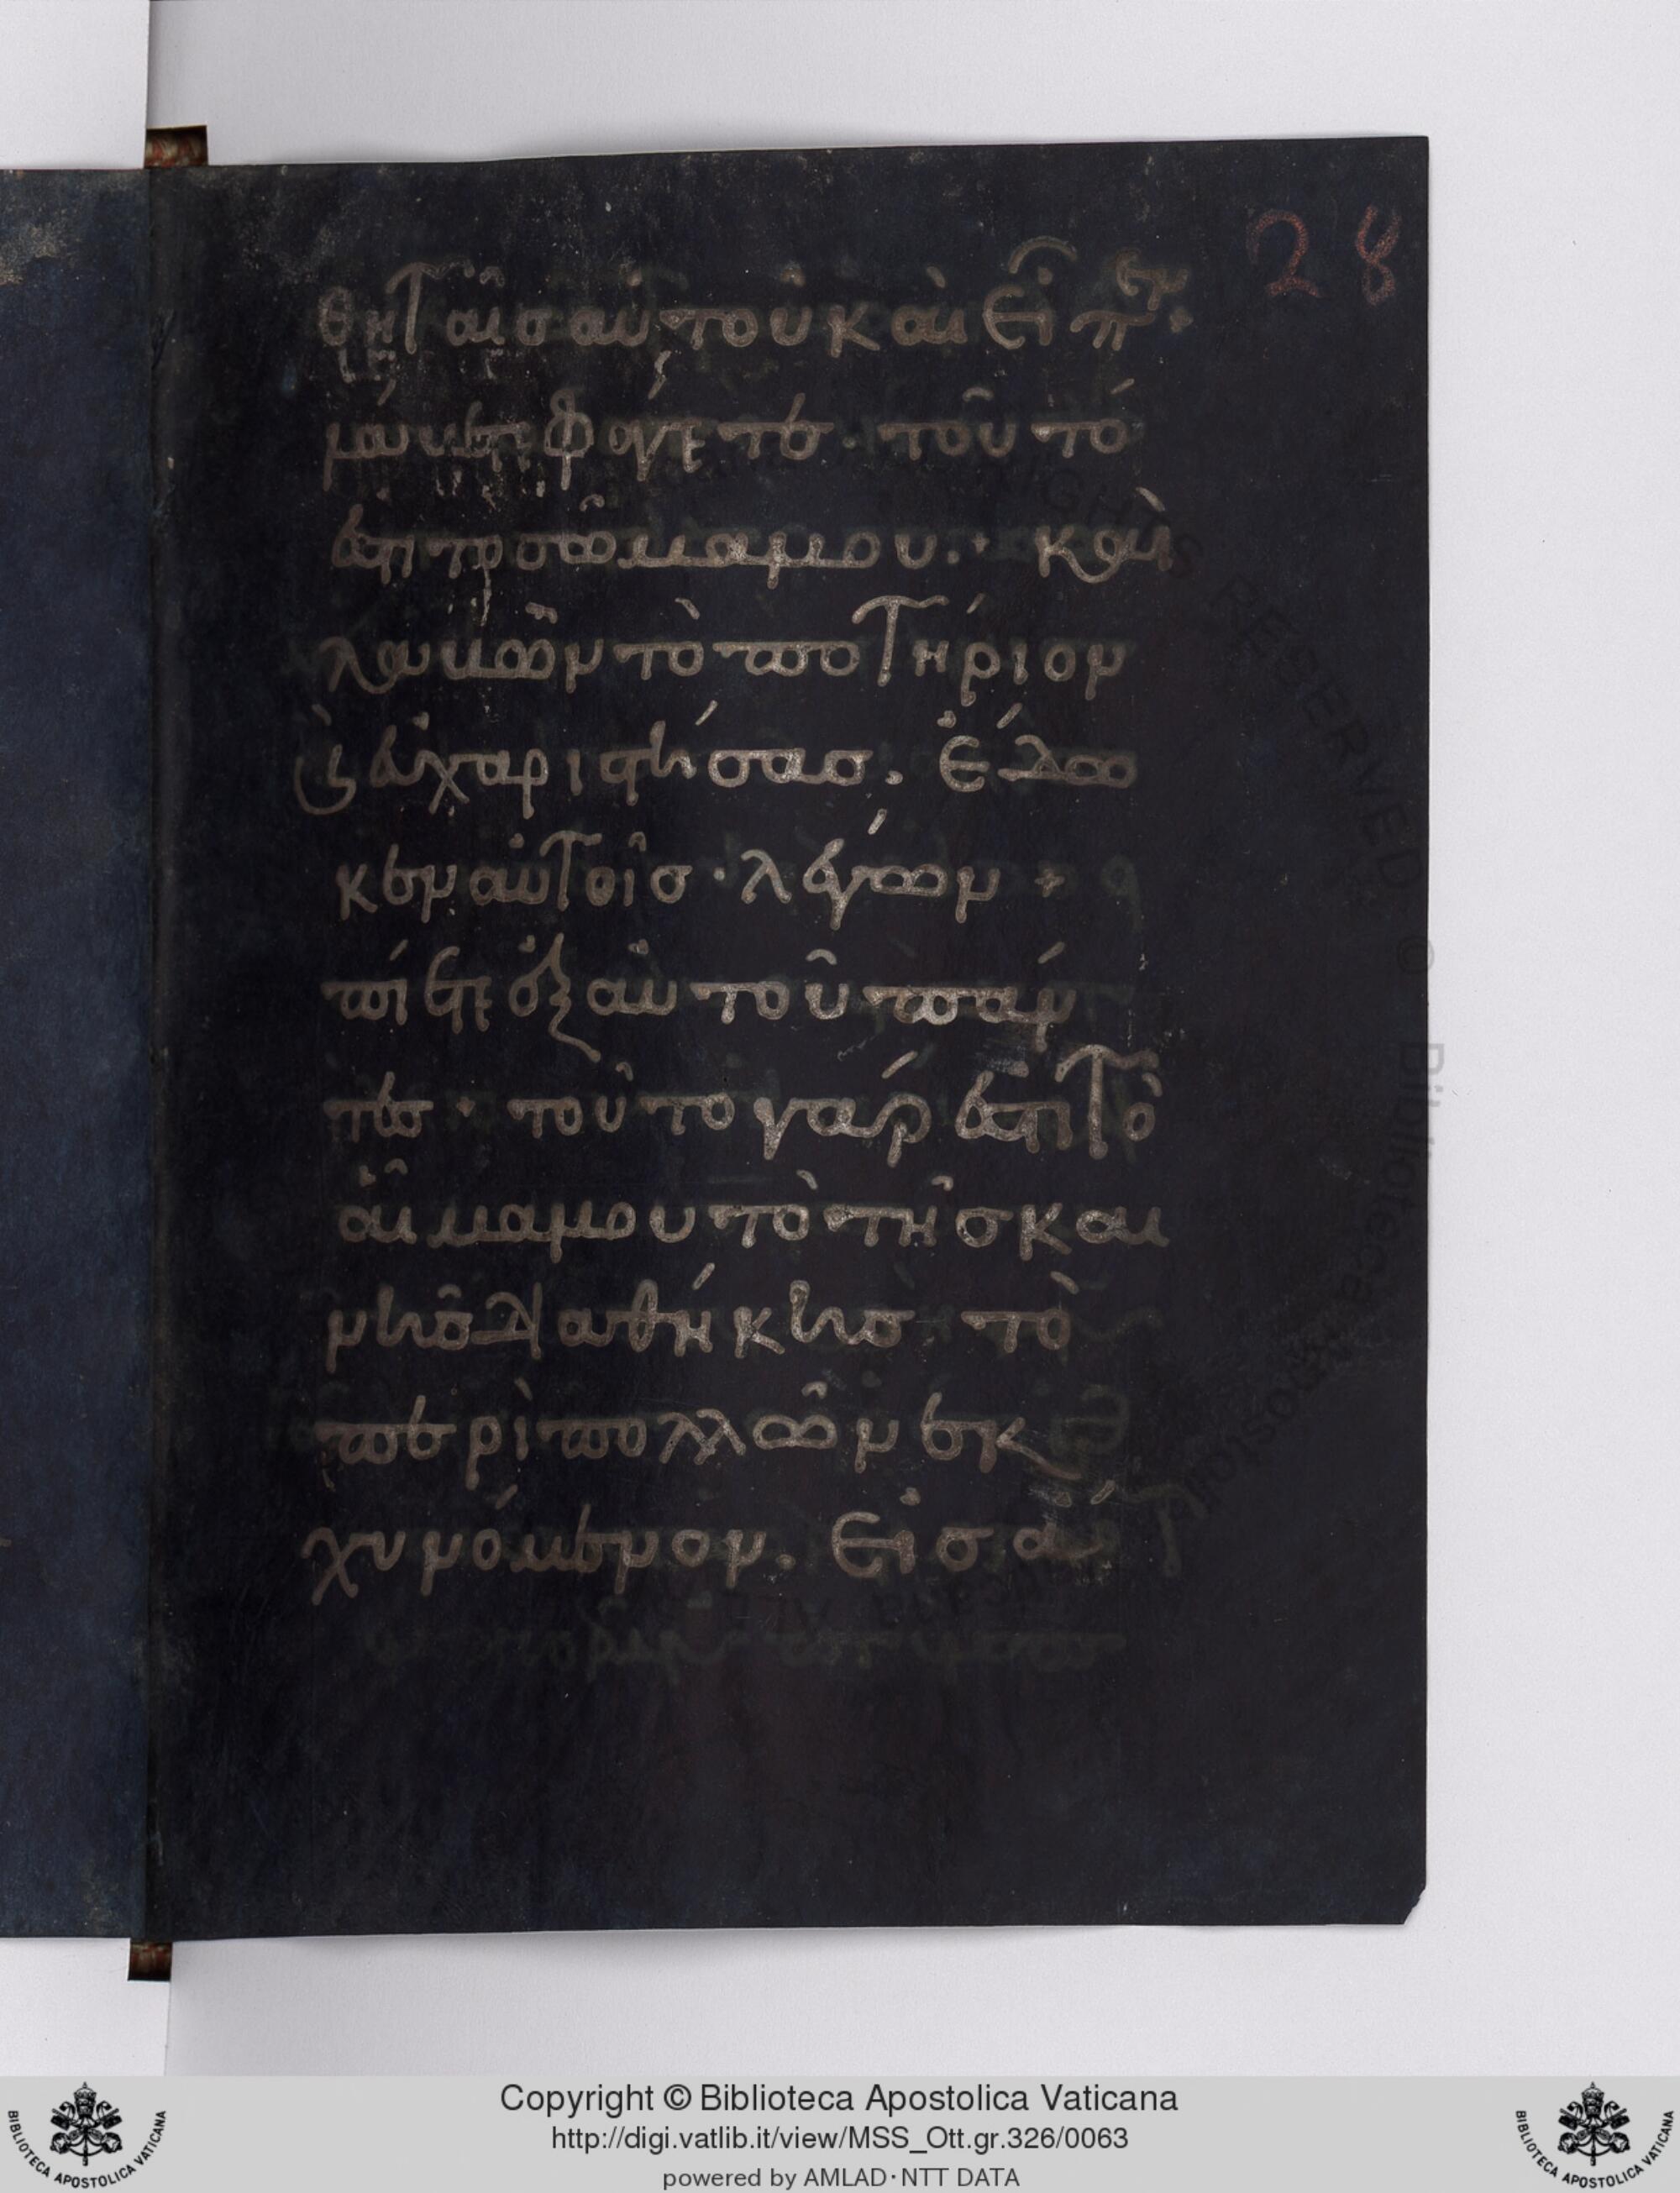 28
θηταῖς αὐτοῦ καὶ εἶπεν·
λάβετε φάγετε· τοῦτό
ἐστι τὸ σῶμα μου· καὶ
λαβὼν τὸ ποτήριον
ϗ εὐχαριστήσας. ἔδω
κεν αὐτοῖς· λέγων +
πίετε ἐξ αὐτοῦ πάν
τες· τοῦτο γάρ ἐστι τὸ
αἷμα μου τὸ τῆς και
νῆς διαθήκης τὸ
περὶ πολλῶν ἐκ
χυνόμενον. εἰς ἄ
RIGHTS RESERVED © Biblioteca Apostolica Vaticana
Copyright © Biblioteca Apostolica Vaticana
http://digi.vatlib.it/view/MSS_Ott.gr.326/0063
powered by AMLAD·NTT DATA
BIBLIOTECA APOSTOLICA VATICANA
BIBLIOTECA APOSTOLICA VATICANA